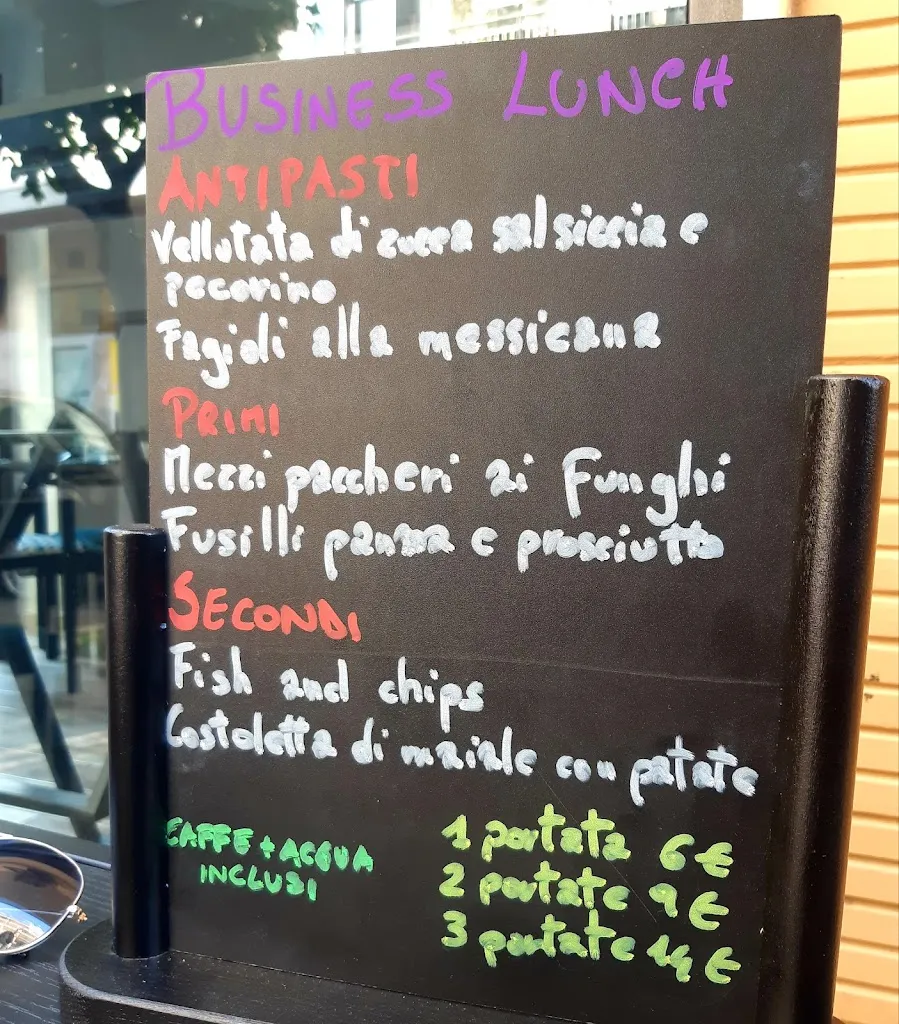 BUSINESS LUNCH
ANTIPASTI
Vellutata di zucca salsiccia e
pecorino
Fagioli alla messicana
PRIMI
Mezzi paccheri ai Funghi
Fusilli panna e prosciutto
SECONDI
Fish and chips
Costoletta di maiale con patate
CAFFE + ACQUA
INCLUSI
1 portata 6 €
2 portate 9 €
3 portate 14 €